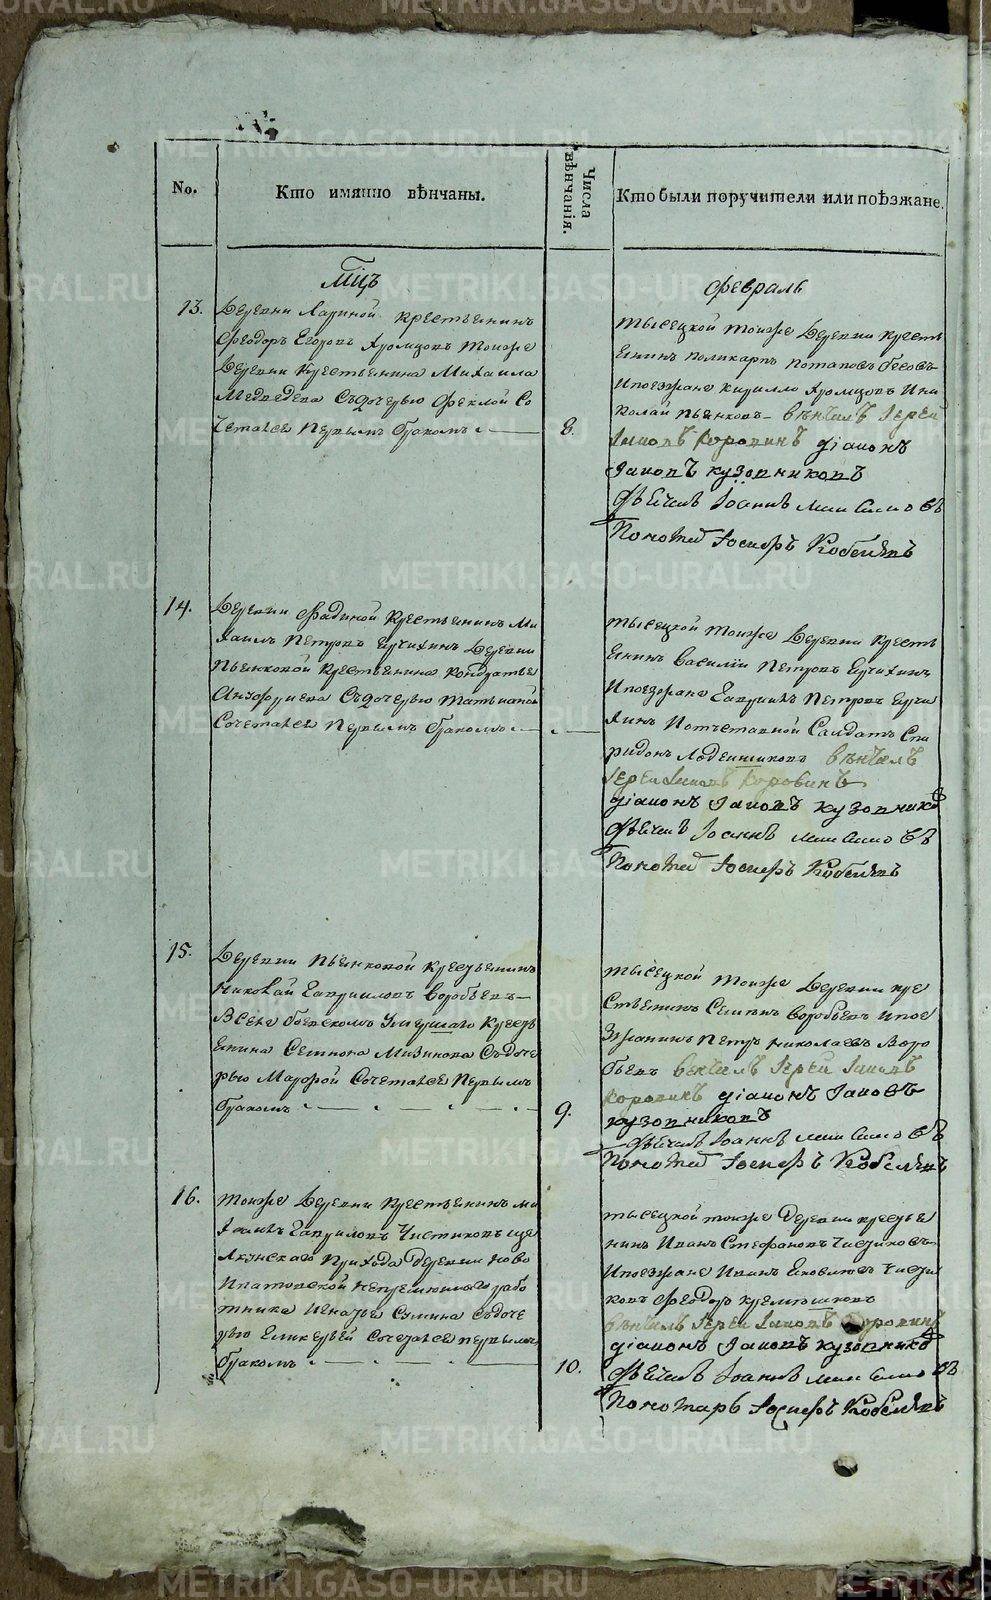 METRIKI.GASO-URAL.RU
No.
Кто имянно вѣнчаны.
Числа вѣнчанія.
Кто были поручители или поѣзжане.
Мцъ
Февраль
13.
Деревни Лариной крестьянинъ
Феодоръ Егоровъ Хромцовъ тоиже
Деревни крестьянина Михаила
Медведева съ дочерью Феклой Со
четался первымъ бракомъ
8.
Тысецкой тоиже Деревни кресть
янинъ поликарпъ потаповъ
ипоезжане кирилло Хромцовъ ини
колай пьянковъ вѣнчалъ Іерей
Іаковъ Коровинъ діаконъ
Іаковъ кузовниковъ
Дьячекъ Іоаннъ
Пономарь Іосифъ
14.
Деревни Фадиной крестьянинъ Ми
хаилъ Петровъ Деревни
Пьянковой крестьянина кондратья
Съ дочерью Татьяной
Сочетался первымъ бракомъ
Тысецкой тоиже Деревни кресть
янинъ василий Петровъ
ипоезжане Гаврилъ Петровъ
Иотставной Салдатъ Спи
ридонъ Ладейщиковъ вѣнчалъ
Іерей Іаковъ Коровинъ
діаконъ Іаковъ кузовниковъ
Дьячекъ Іоаннъ
Пономарь Іосифъ
15.
Деревни пьянковой крестьянинъ
Николай Гавриловъ воробьевъ
умершаго кресть
янина Семиона Мизинова съ доче
рью Марфой Сочетался первымъ
бракомъ
9.
Тысецкой тоиже Деревни кре
стьянинъ воробьевъ ипое
зжанинъ Петръ николаевъ Воро
бьевъ вѣнчалъ Іерей Іаковъ
Коровинъ діаконъ Іаковъ
кузовниковъ
Дьячекъ Іоаннъ
Пономарь Іосифъ
16.
Тоиже Деревни крестьянинъ ми
Гавриловъ Чистяковъ
прихода Деревни ново
Ипатовской непременнаго рабо
тника Игнатья Сумина съ доче
рью Сочетался первымъ
бракомъ
10.
Тысецкой тоиже Деревни крестья
нинъ Иванъ Стефановъ Чистяковъ
ипоезжане Иванъ Яковлевъ Чистя
ковъ Феодоръ
вѣнчалъ Іерей Іаковъ Коровинъ
діаконъ Іаковъ кузовниковъ
Дьячекъ Іоаннъ
Пономарь Іосифъ